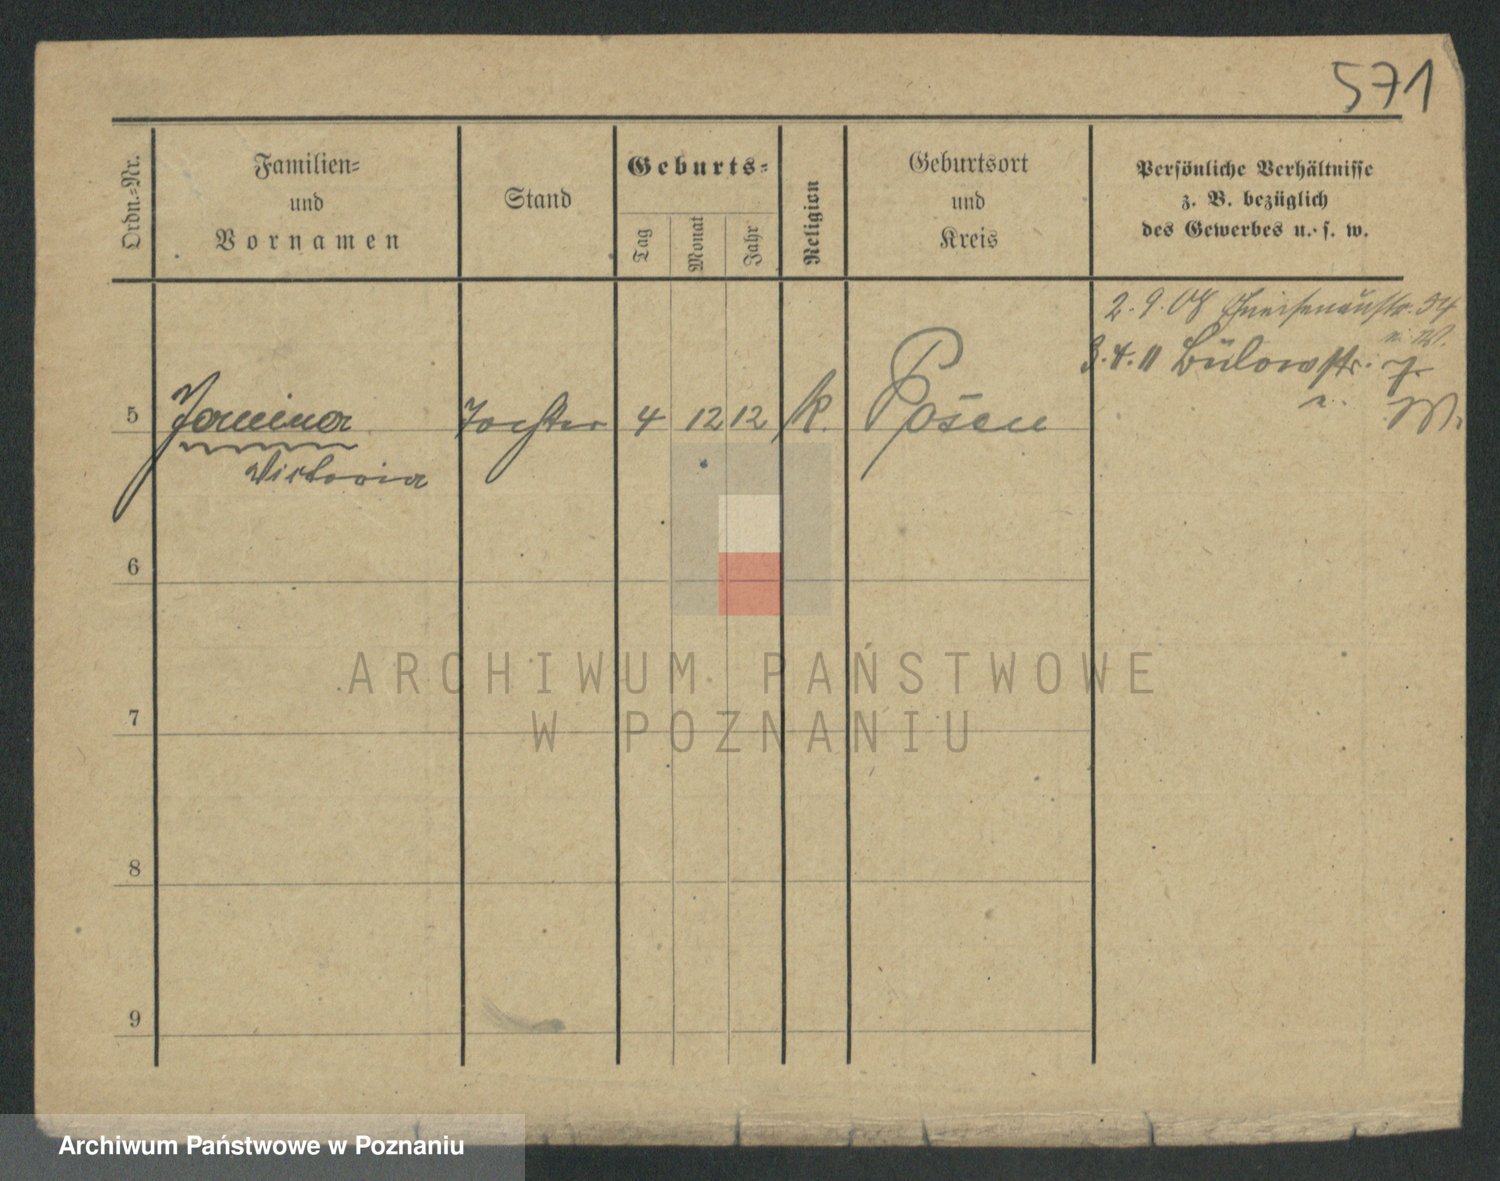 571
Ordn.-Nr.
Familien-
und
Vornamen
Stand
Geburts-
Tag
Monat
Jahr
Religion
Geburtsort
und
Kreis
Persönliche Verhältnisse
z. B. bezüglich
des Gewerbes u. s. w.
2.9.08 Gneisenaustr. 34
3.4.11 Bülowstr. 7
5 Janina Tochter 4 12 12 k. Posen
Victoria
6
7
8
9
ARCHIWUM PAŃSTWOWE
W POZNANIU
Archiwum Państwowe w Poznaniu